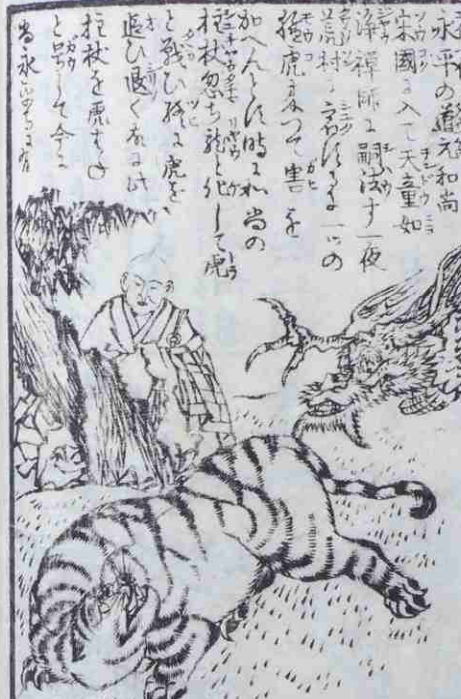 永平の道元和尚
宋國に入て天童如
浄禅師に嗣法す一夜
荒村に宿するに一の
猛虎来つて害を
加へんとす時に和尚の
柱杖忽ち龍と化して虎
と戦ひ終に虎を
追ひ退く故に此
柱杖を虎はしと
と号して今に
当永平寺に有